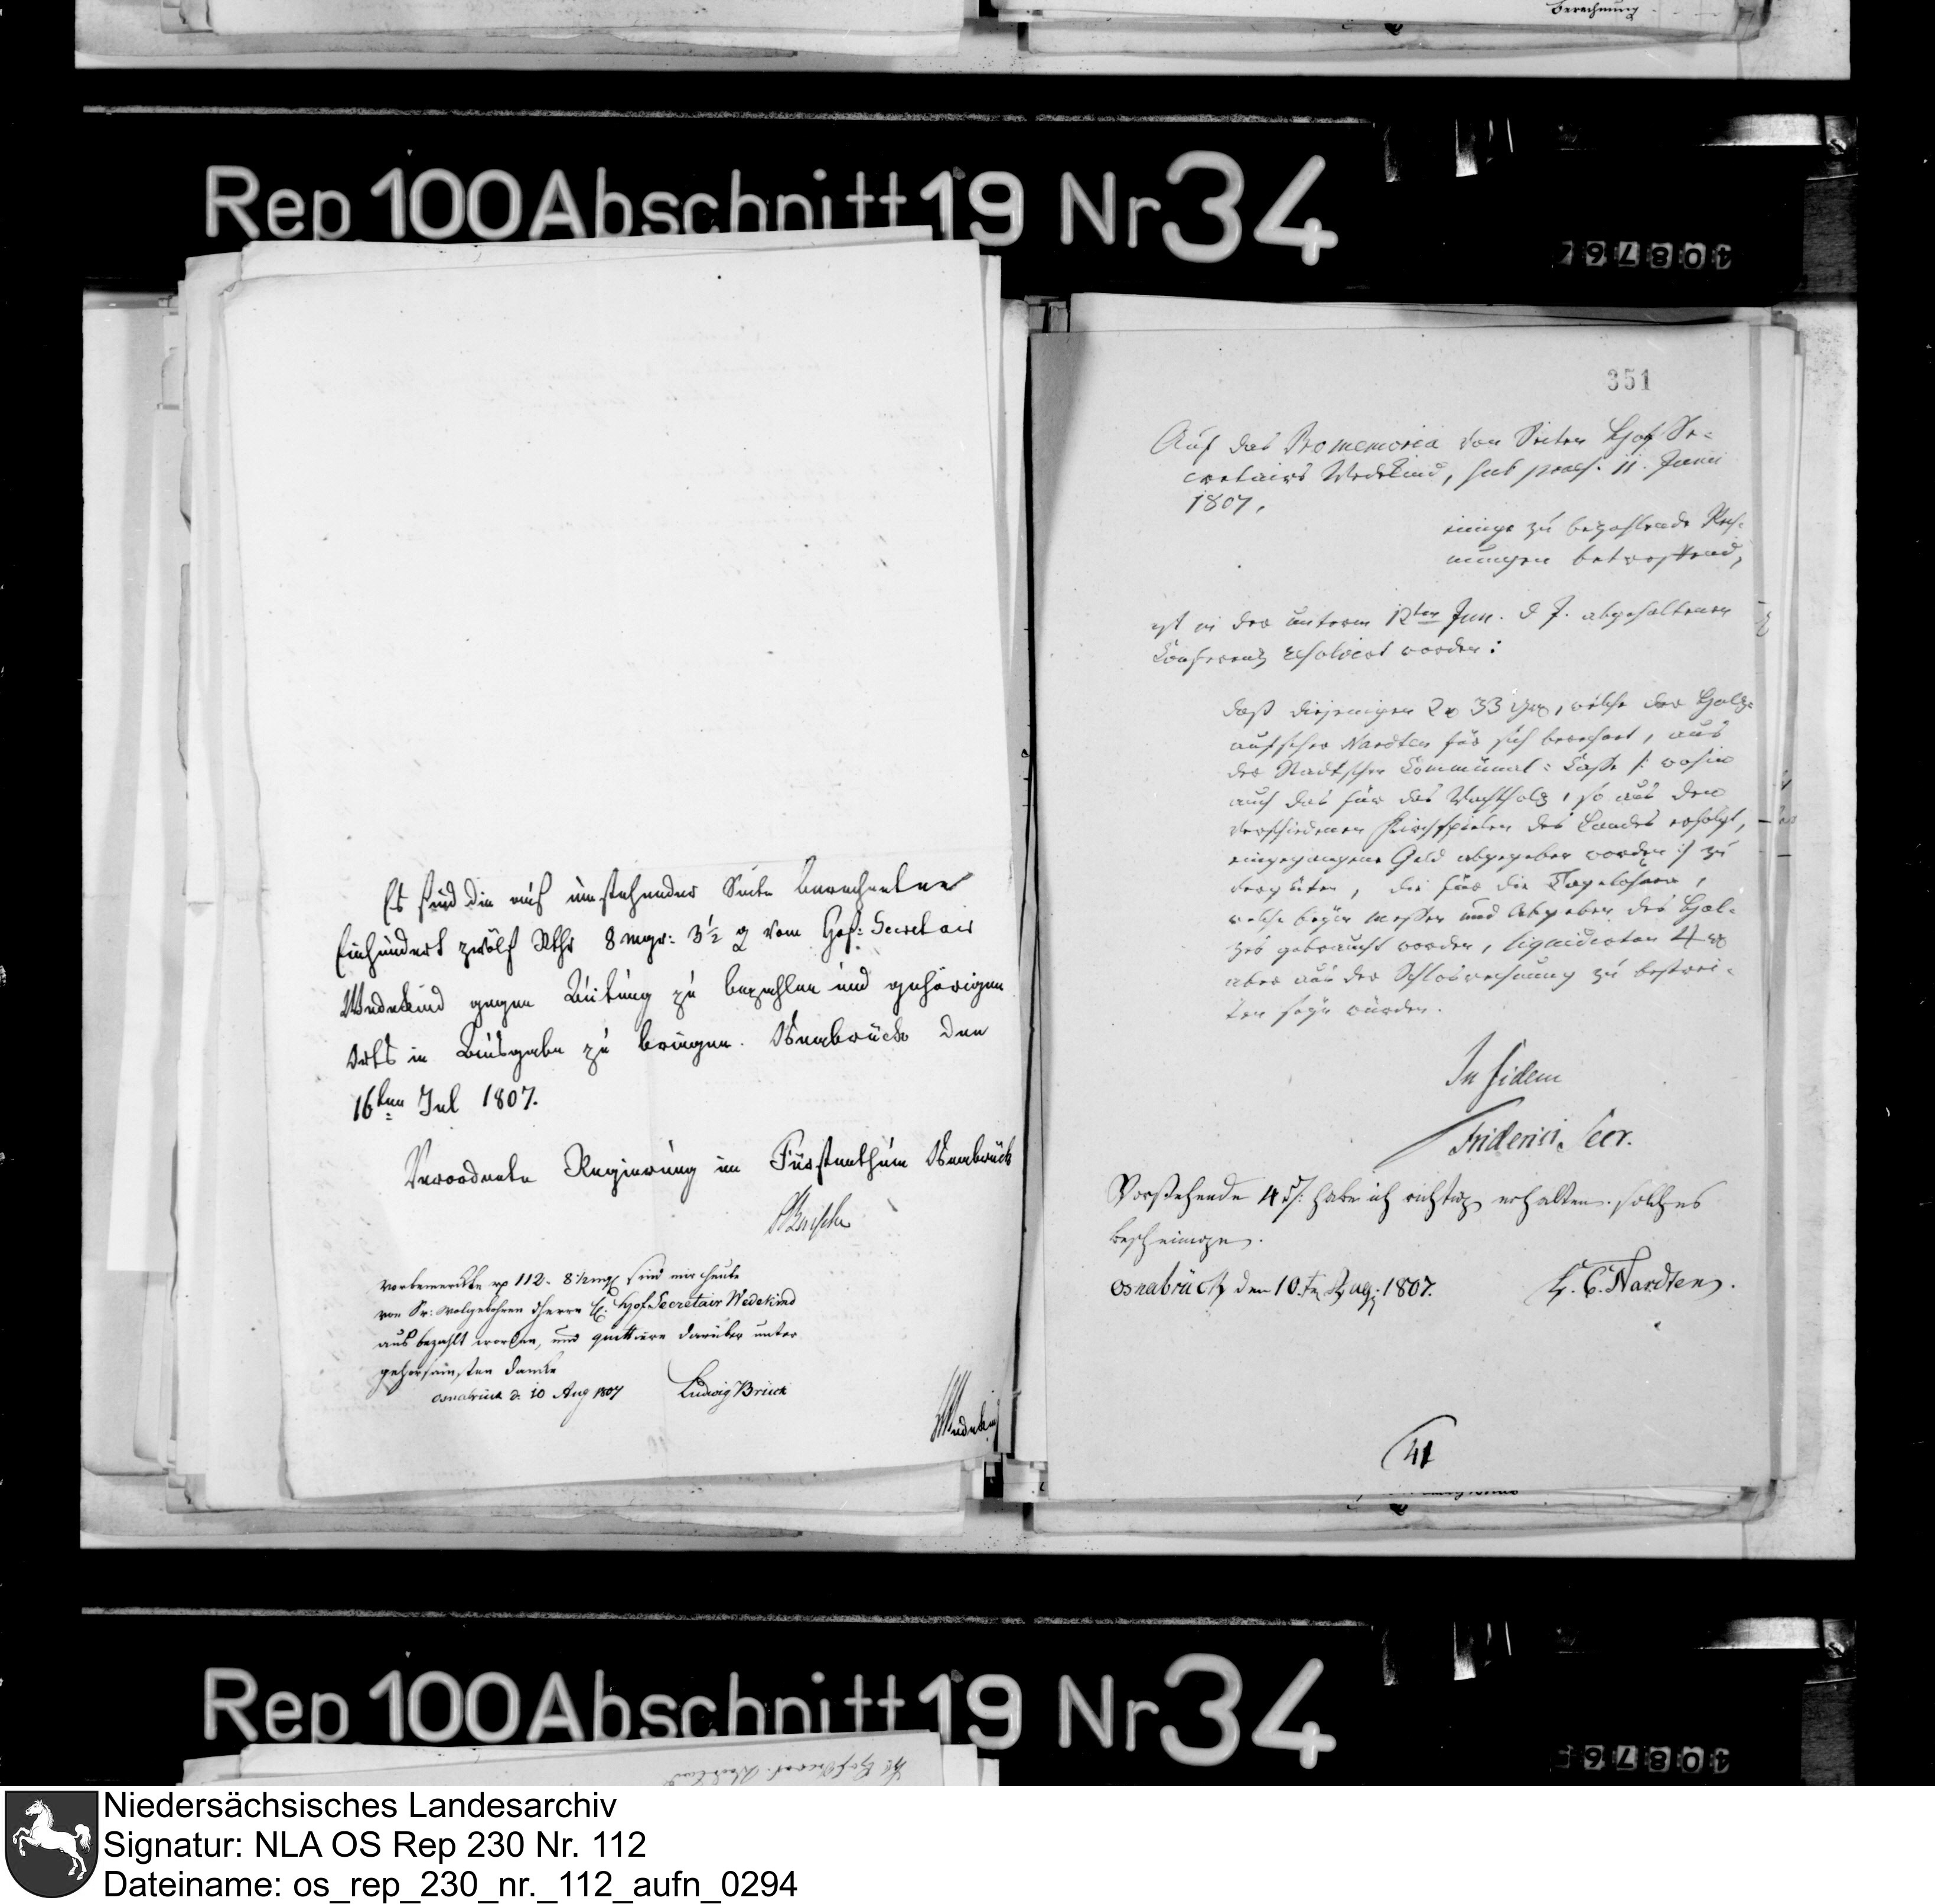 Berechnung
Rep. 100 Abschnitt 19 Nr 34
40876
Es sind die auf umstehender Seite berechnete
Einhundert zwölf Rthr 8 mgr: 3½ ₰ vom Hof: Secretair
Wedekind gegen Quitung zu bezahlen und gehörigen
Orts in Ausgabe zu bringen. Osnabrück den
16ten Jul 1807.
Verordnete Regierung im Fürstenthum Osnabrück
vorbemerckte rp 112. 8½ mg sind mir heute
von Sr: Wolgebohren Herrn Hof Secretair Wedekind
aus bezahlt worden, und quittiere darüber unter
gehorsamsten Dancke
Osnabrück d. 10 Aug 1807 Ludwig Brück
Wedekind
351
Auf das Promemoria von Seiten Hof Se-
cretairs Wedekind, sub praes. 11. Junii
1807,
einige zu bezahlende Rech-
nungen betreffend,
ist in der unterm 12ten Jun. d J. abgehaltenen
Conferenz resolvirt worden:
daß diejenigen 2 rp 33 mgr, welche der Holz-
aufseher Nardten für sich berechnet, aus
der Stadtschen Communal-Casse /: wohin
auch das für das Wachtholz, so aus den
verschiedenen Kirchspielen des Landes erfolgt,
eingegangene Geld abgegeben worden :/ zu
vergüten, die für die Tagelöhner,
welche beym messen und Abgeben des Hol-
zes gebraucht worden, liquidirten 4 rp
aber aus der Schlosrechnung zu bestrei-
ten seyn würden.
In fidem
Friderici. Secr.
Vorstehende 4 habe ich richtig erhalten. solches
bescheinige.
Osnabrück den 10.te Aug: 1807. Nardten.
41
Rep. 100 Abschnitt 19 Nr 34
40876
Niedersächsisches Landesarchiv
Signatur: NLA OS Rep 230 Nr. 112
Dateiname: os_rep_230_nr._112_aufn_0294